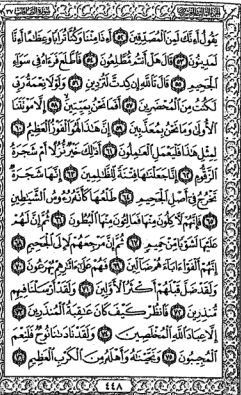 يَقُولُ أَءِنَّكَ لَمِنَ الْمُصَدِّقِينَ ٥٢ أَءِذَا مِتْنَا وَكُنَّا تُرَابًا وَعِظَٰمًا أَءِنَّا
لَمَدِينُونَ ٥٣ قَالَ هَلْ أَنتُم مُّطَّلِعُونَ ٥٤ فَاطَّلَعَ فَرَءَاهُ فِي سَوَآءِ
الْجَحِيمِ ٥٥ قَالَ تَاللَّهِ إِن كِدتَّ لَتُرْدِينِ ٥٦ وَلَوْلَا نِعْمَةُ رَبِّي
لَكُنتُ مِنَ الْمُحْضَرِينَ ٥٧ أَفَمَا نَحْنُ بِمَيِّتِينَ ٥٨ إِلَّا مَوْتَتَنَا
الْأُولَىٰ وَمَا نَحْنُ بِمُعَذَّبِينَ ٥٩ إِنَّ هَٰذَا لَهُوَ الْفَوْزُ الْعَظِيمُ ٦٠
لِمِثْلِ هَٰذَا فَلْيَعْمَلِ الْعَٰمِلُونَ ٦١ أَذَٰلِكَ خَيْرٌ نُّزُلًا أَمْ شَجَرَةُ
الزَّقُّومِ ٦٢ إِنَّا جَعَلْنَٰهَا فِتْنَةً لِّلظَّٰلِمِينَ ٦٣ إِنَّهَا شَجَرَةٌ
تَخْرُجُ فِي أَصْلِ الْجَحِيمِ ٦٤ طَلْعُهَا كَأَنَّهُ رُءُوسُ الشَّيَٰطِينِ
٦٥ فَإِنَّهُمْ لَءَاكِلُونَ مِنْهَا فَمَالِـُٔونَ مِنْهَا الْبُطُونَ ٦٦ ثُمَّ إِنَّ لَهُمْ
عَلَيْهَا لَشَوْبًا مِّنْ حَمِيمٍ ٦٧ ثُمَّ إِنَّ مَرْجِعَهُمْ لَإِلَى الْجَحِيمِ ٦٨
إِنَّهُمْ أَلْفَوْا ءَابَآءَهُمْ ضَآلِّينَ ٦٩ فَهُمْ عَلَىٰ ءَاثَٰرِهِمْ يُهْرَعُونَ ٧٠
وَلَقَدْ ضَلَّ قَبْلَهُمْ أَكْثَرُ الْأَوَّلِينَ ٧١ وَلَقَدْ أَرْسَلْنَا فِيهِم
مُّنذِرِينَ ٧٢ فَانظُرْ كَيْفَ كَانَ عَٰقِبَةُ الْمُنذَرِينَ ٧٣
إِلَّا عِبَادَ اللَّهِ الْمُخْلَصِينَ ٧٤ وَلَقَدْ نَادَىٰنَا نُوحٌ فَلَنِعْمَ
الْمُجِيبُونَ ٧٥ وَنَجَّيْنَٰهُ وَأَهْلَهُ مِنَ الْكَرْبِ الْعَظِيمِ ٧٦
٤٤٨